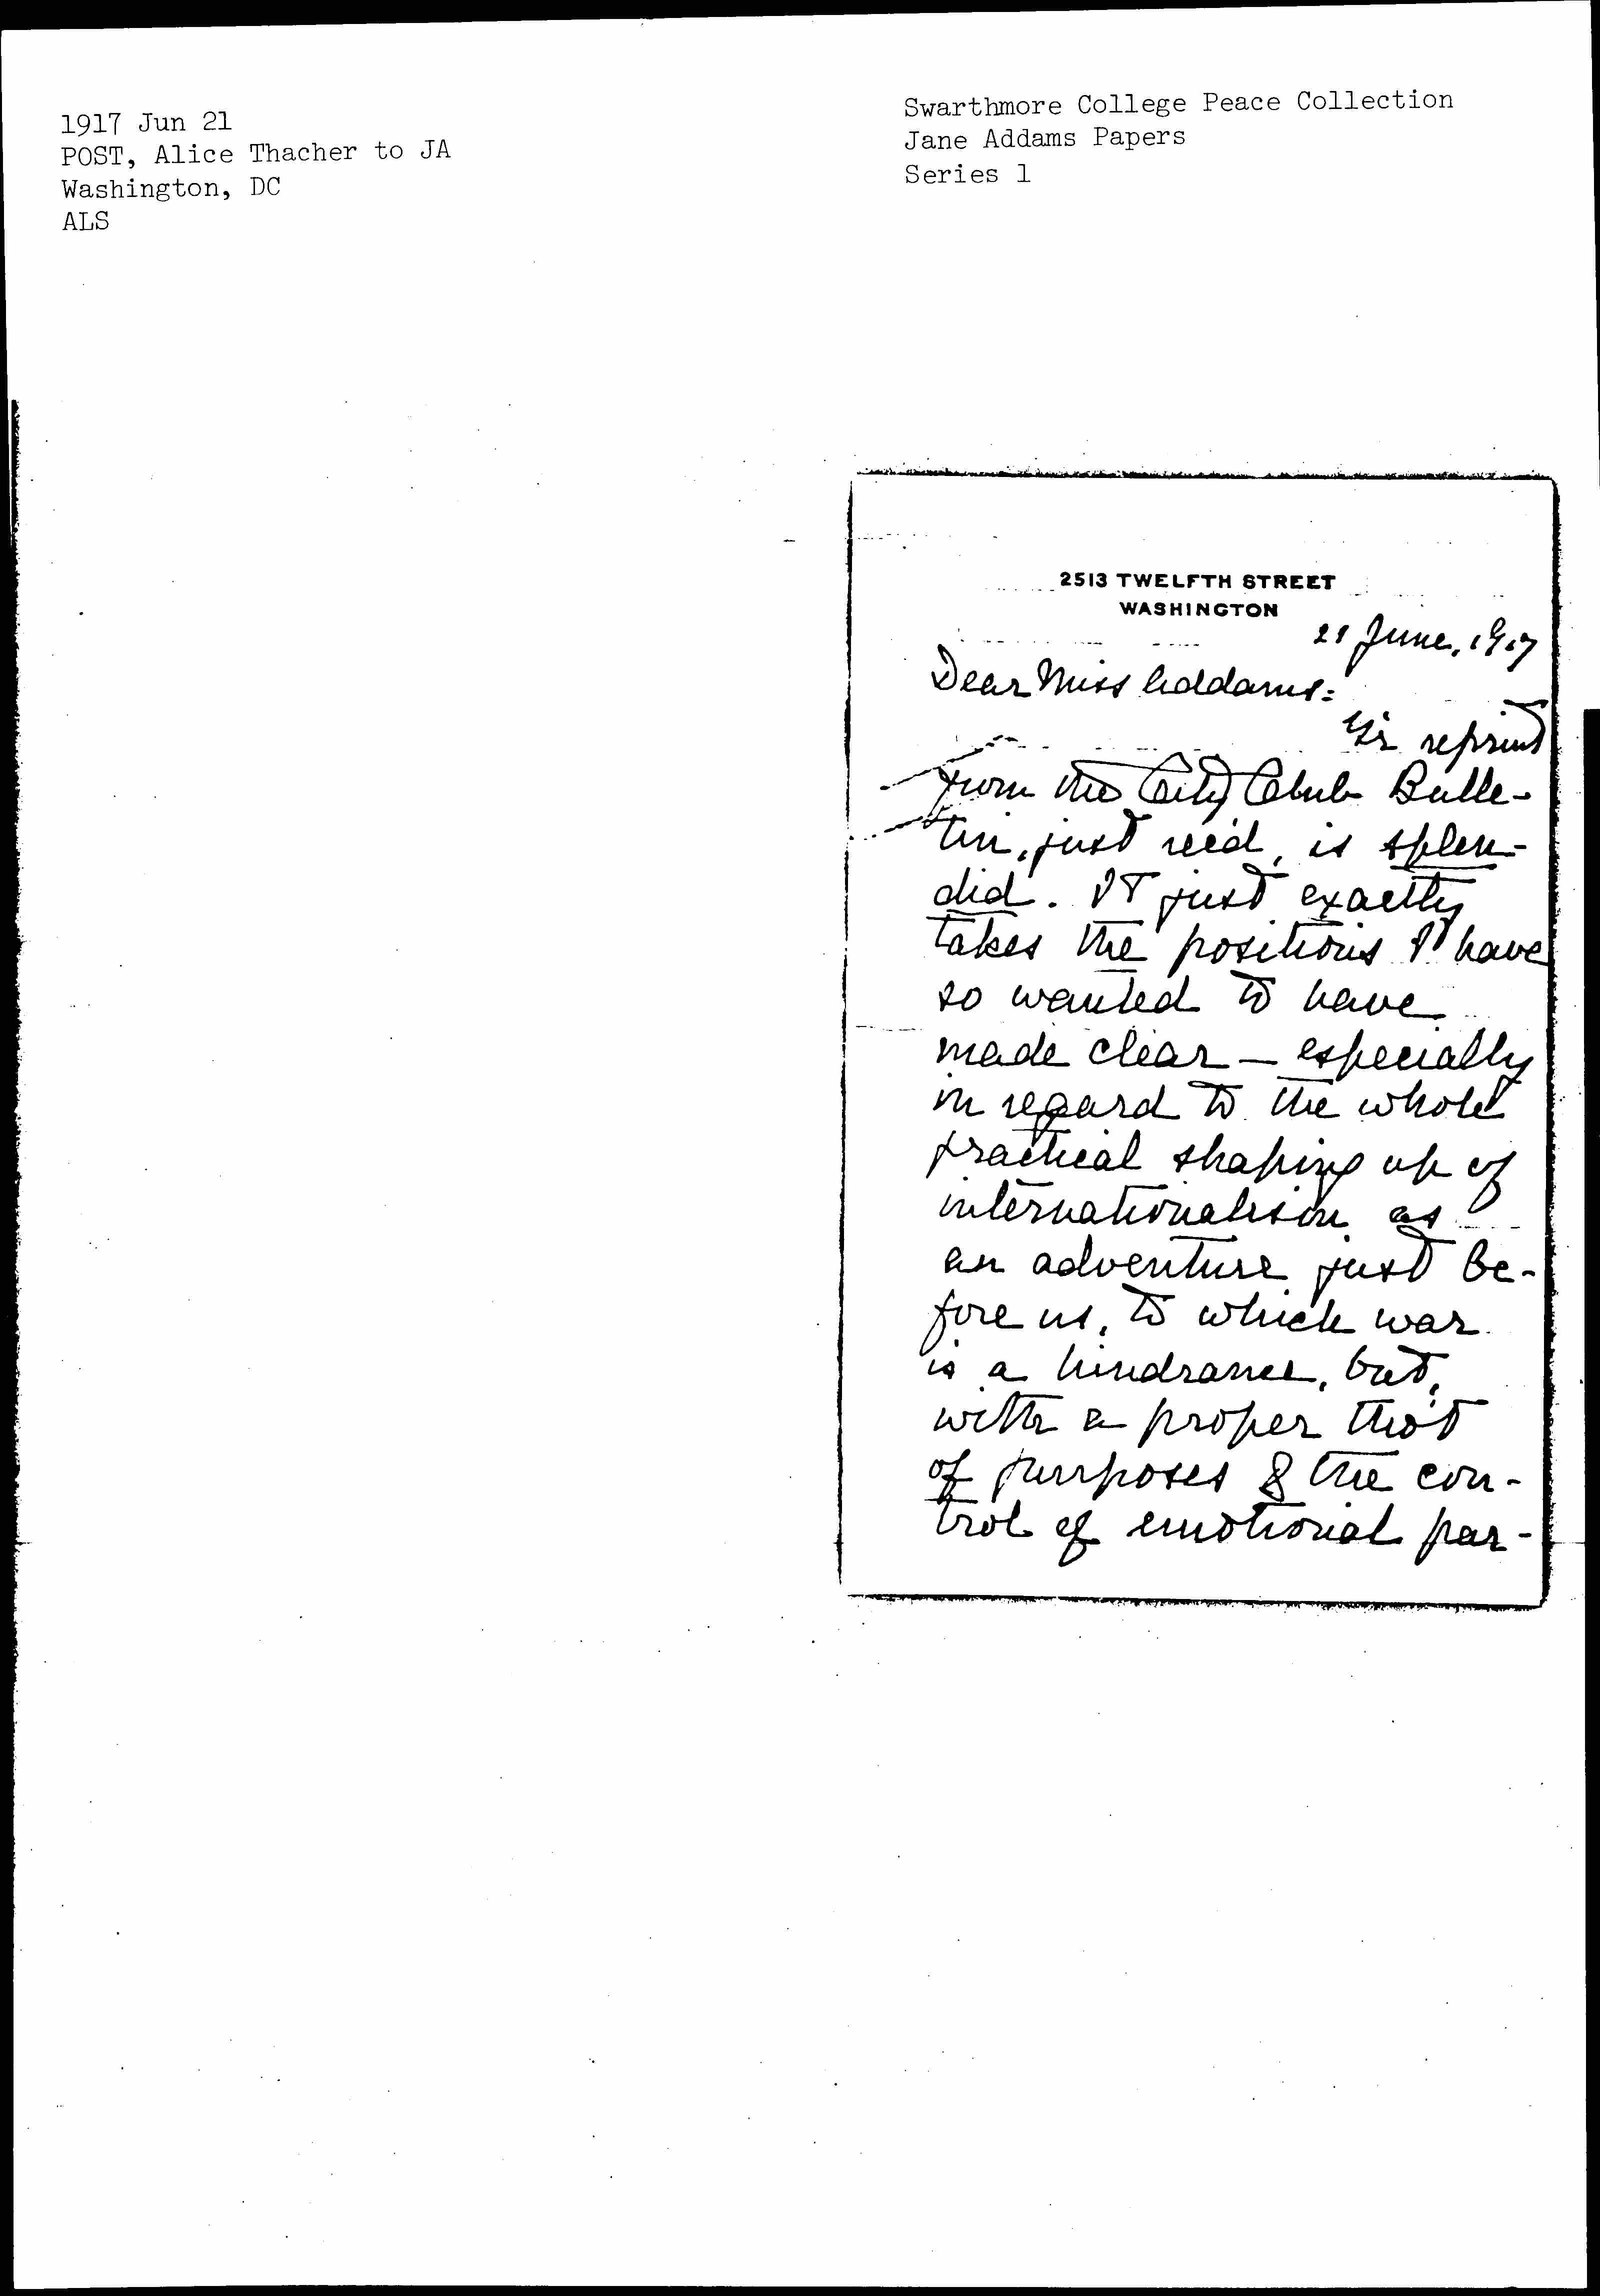 1917 Jun 21
POST, Alice Thacher to JA
Washington, DC
ALS
Swarthmore College Peace Collection
Jane Addams Papers
Series 1
2513 TWELFTH STREET
WASHINGTON
21 June, 1917
Dear Miss Addams:
Yr reprint
from the City Club Bulle-
tin, just rec'd, is splen-
did. It just exactly
takes the positions I have
so wanted to have
made clear — especially
in regard to the whole
practical shaping up of
internationalism as
an adventure just be-
fore us, to which war
is a hindrance, but,
with a proper tho't
of purposes & the con-
trol of emotional par-